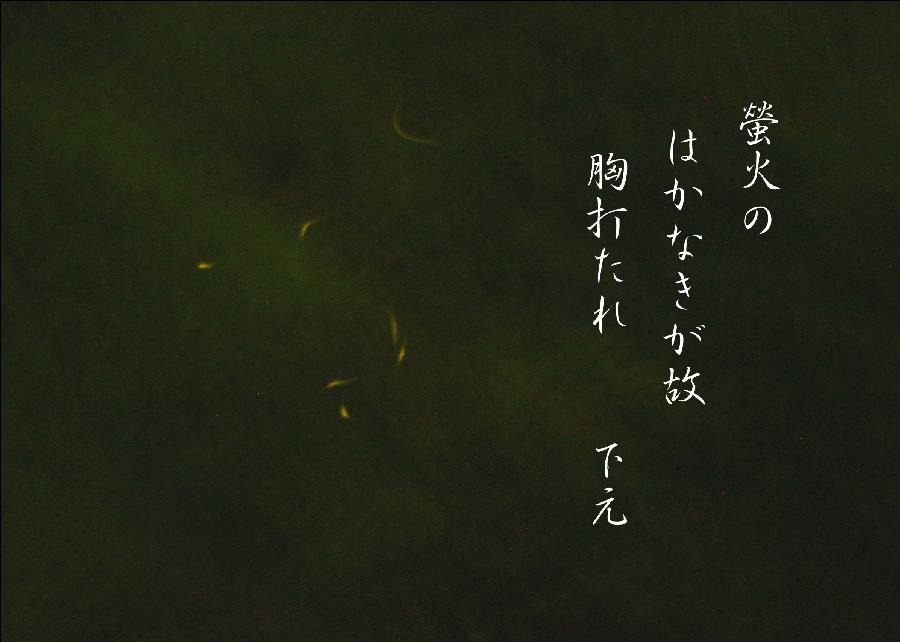 螢火の
はかなきが故
胸打たれ 下元